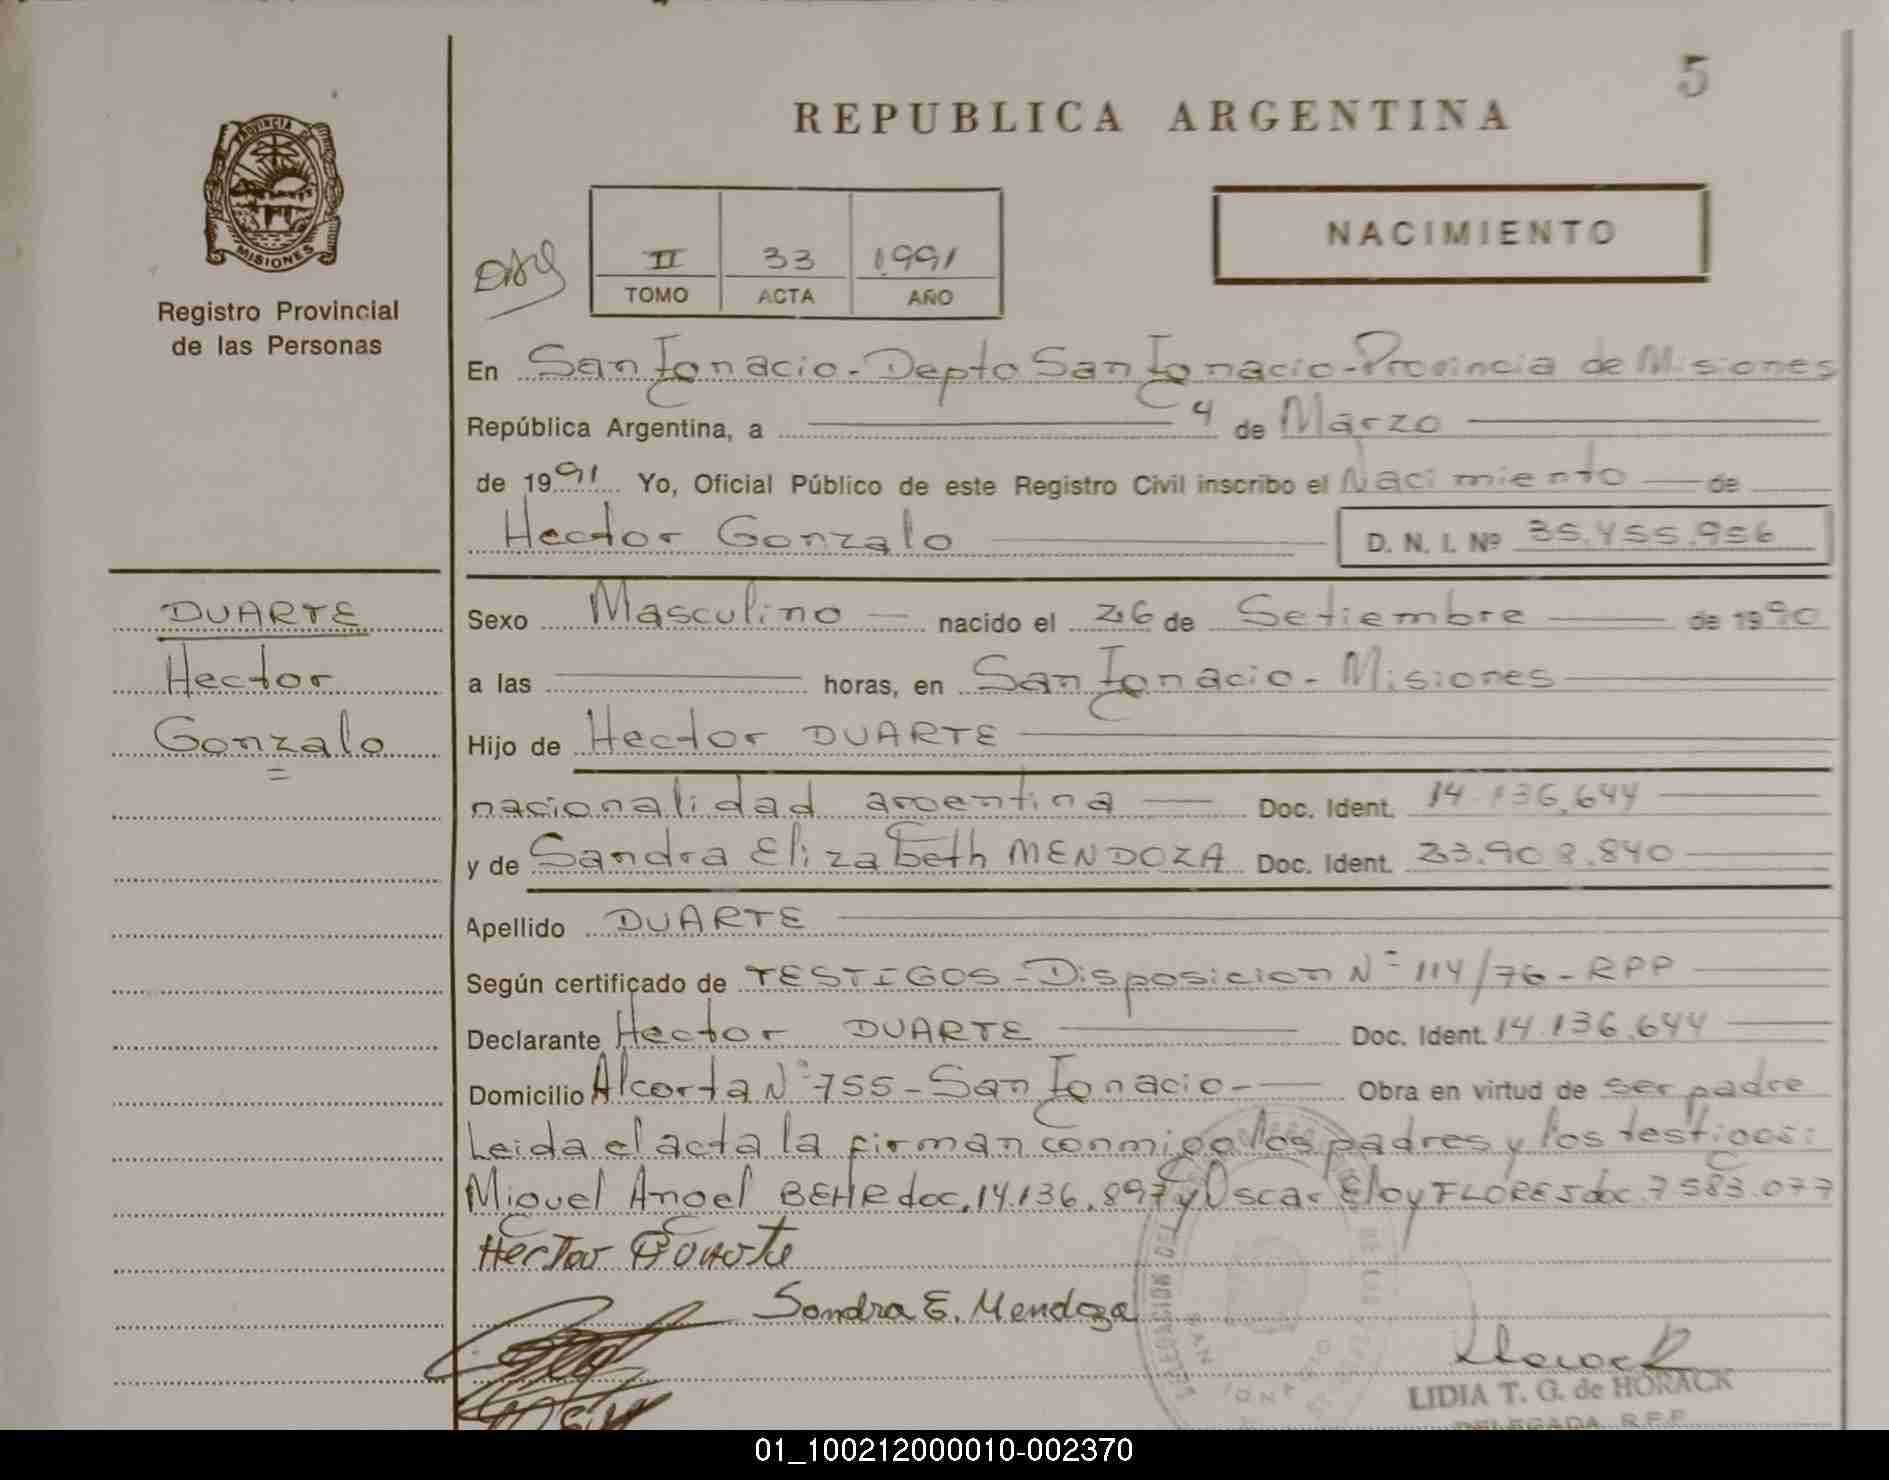 5
REPUBLICA ARGENTINA
PROVINCIA DE
MISIONES
Registro Provincial
de las Personas
II 33 1991
TOMO ACTA AÑO
NACIMIENTO
En San Ignacio - Depto San Ignacio - Provincia de Misiones
República Argentina, a 4 de Marzo
de 1991 Yo, Oficial Público de este Registro Civil inscribo el Nacimiento de
Hector Gonzalo D. N. I. Nº 35.455.956
DUARTE
Hector
Gonzalo
Sexo Masculino nacido el 26 de Setiembre de 1990
a las horas, en San Ignacio - Misiones
Hijo de Hector DUARTE
nacionalidad argentina Doc. Ident. 14.136.644
y de Sandra Elizabeth MENDOZA Doc. Ident. 23.908.840
Apellido DUARTE
Según certificado de TESTIGOS - Disposicion Nº 114/76 - RPP
Declarante Hector DUARTE Doc. Ident. 14.136.644
Domicilio Alcorta Nº 755 - San Ignacio - Obra en virtud de ser padre
Leida el acta la firman conmigo los padres y los testigos:
Miguel Angel BEHR doc. 14.136.897 y Oscar Eloy FLORES doc. 7583.077
Hector Duarte
Sandra E. Mendoza
LIDIA T. G. de HORACK
DELEGADA R.P.P.
01_100212000010-002370